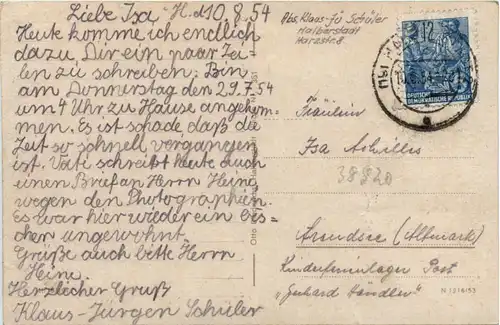 Liebe Isa H. d 10.8.54
Heute komme ich endlich
dazu, Dir ein paar Zei-
len zu schreiben. Bin
am Donnerstag den 29.7.54
um 4 Uhr zu Hause angekom-
men. Es ist schade daß die
Zeit so schnell vergangen
ist. Vati schreibt heute auch
einen Brief an Herrn Heine
wegen den Photographien.
Es war hier wieder ein bis-
chen ungewohnt.
Grüße auch bitte Herrn
Heine.
Herzlicher Gruß
Klaus-Jürgen Schüler
Abs. Klaus-Jü Schüler
Halberstadt
Harzstr. 8
DEUTSCHE
DEMOKRATISCHE REPUBLIK
Fräulein
Isa Achilles
38820
Arendsee (Altmark)
Kinderferienlager Post
"Gerhard Händler"
N 1216/53
Otto